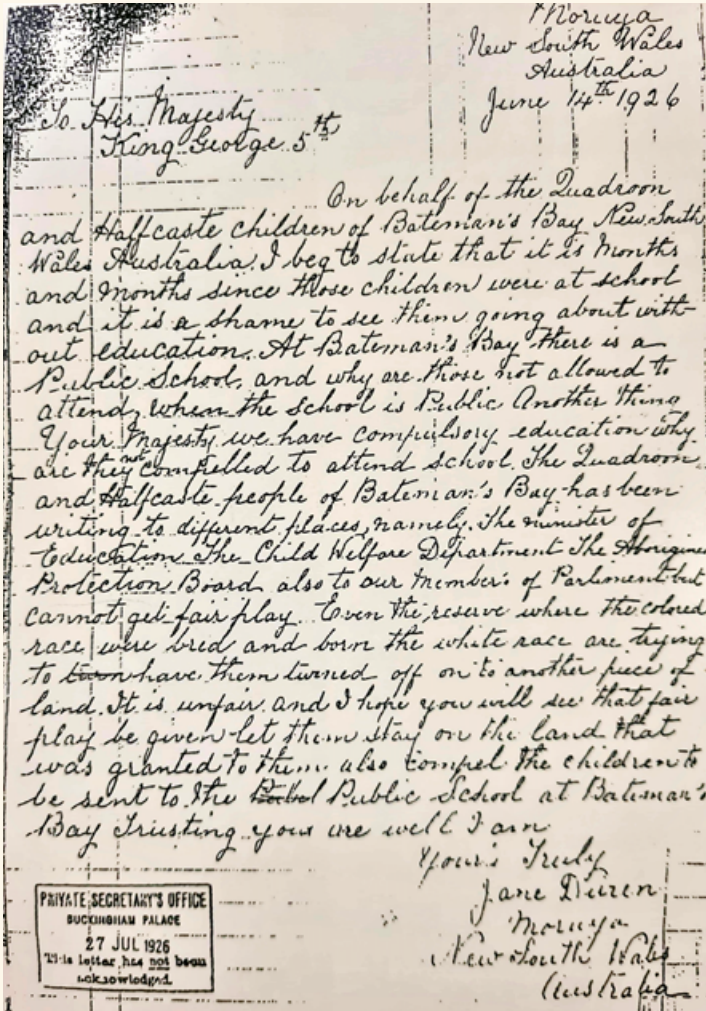 Moruya
New South Wales
Australia
June 14th 1926
To His Majesty
King George 5th
On behalf of the Quadroon
and Halfcaste children of Bateman's Bay New South
Wales Australia I beg to state that it is Months
and Months since those children were at school
and it is a shame to see them going about with-
out education. At Bateman's Bay there is a
Public School, and why are those not allowed to
attend, when the School is Public Another thing
Your Majesty we have compulsory education why
are they not compelled to attend school. The Quadroon
and Halfcaste people of Bateman's Bay has been
writing to different places, namely. The minister of
Education The Child Welfare Department The Aborigines
Protection Board also to our Member's of Parliment but
cannot get fair play. Even the reserve where the colored
race were bred and born the white race are trying
to turn have them turned off on to another piece of
land. It is unfair and I hope you will see that fair
play be given let them stay on the land that
was granted to them also compel the children to
be sent to the Public School at Bateman's
Bay Trusting you are well I am
Your's Truly
Jane Duren
Moruya
New South Wales
Australia
PRIVATE SECRETARY'S OFFICE
BUCKINGHAM PALACE
27 JUL 1926
This letter has not been
acknowledged.